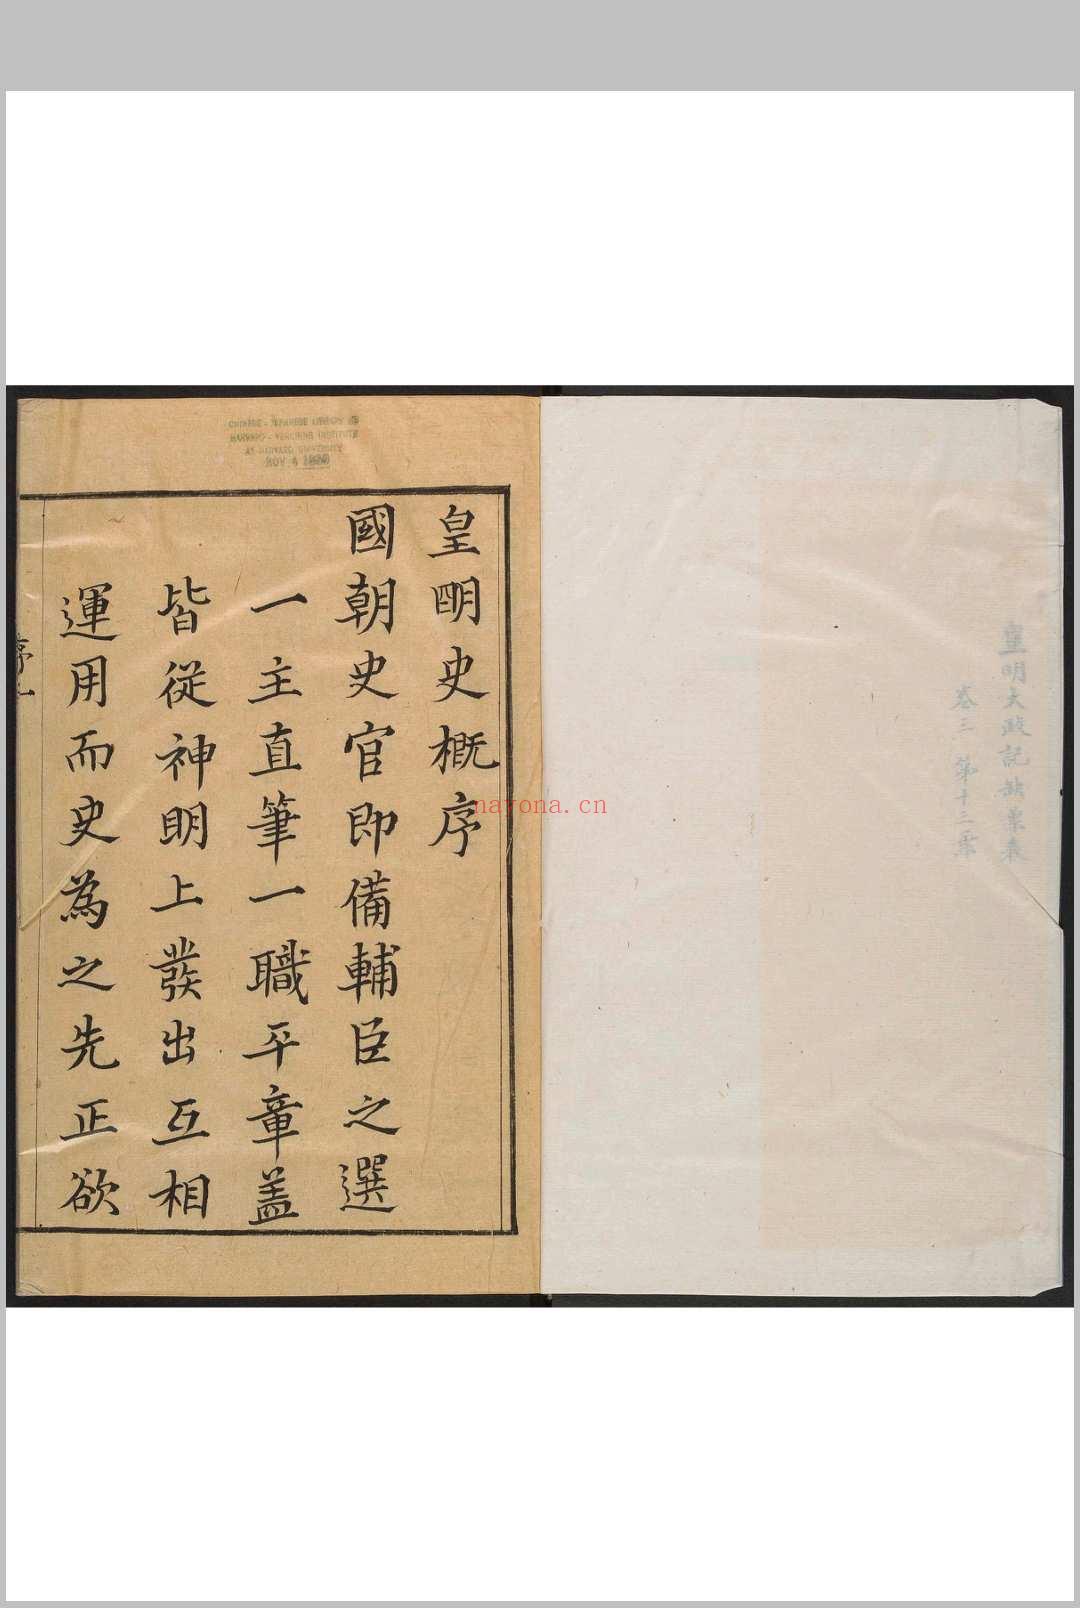 皇明史概序
國朝史官即備輔臣之選
一主直筆一職平章盖
皆從神明上發出互相
運用而史為之先正欲
序
CHINESE - JAPANESE LIBRARY OF
HARVARD - YENCHING INSTITUTE
AT HARVARD UNIVERSITY
NOV 4
皇明大政記缺葉表
卷三 第十三葉
nayona.cn